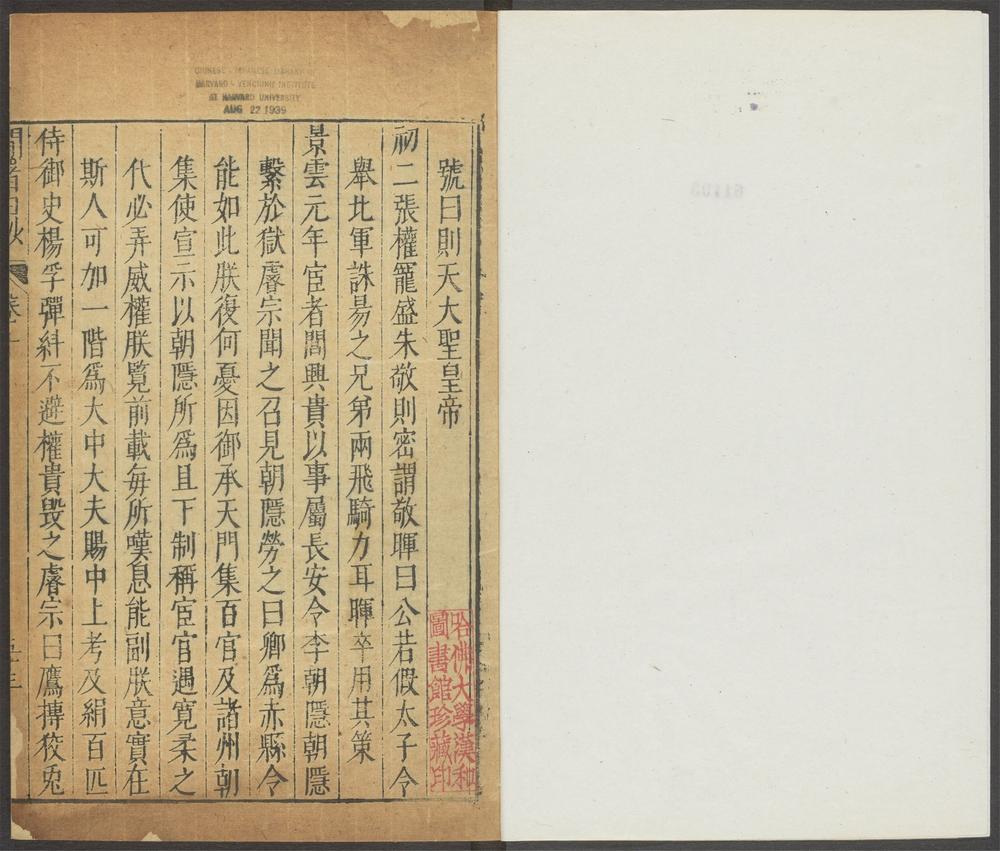 CHINESE - JAPANESE LIBRARY OF
HARVARD - YENCHING INSTITUTE
AT HARVARD UNIVERSITY
AUG 22 1939
號曰則天大聖皇帝
初二張權寵盛朱敬則密謂敬暉曰公若假太子令
舉北軍誅昜之兄弟兩飛騎力耳暉卒用其策
景雲元年宦者閻興貴以事屬長安令李朝隱朝隱
繫於獄睿宗聞之召見朝隱勞之曰卿爲赤縣令
能如此朕復何憂因御承天門集百官及諸州朝
集使宣示以朝隱所爲且下制稱宦官遇寛柔之
代必弄威權朕覽前載每所嘆息能副朕意實在
斯人可加一階爲大中大夫賜中上考及絹百匹
侍御史楊孚彈糾不避權貴毁之睿宗曰鷹摶狡兎
哈佛大學漢和
圖書館珍藏印
61103